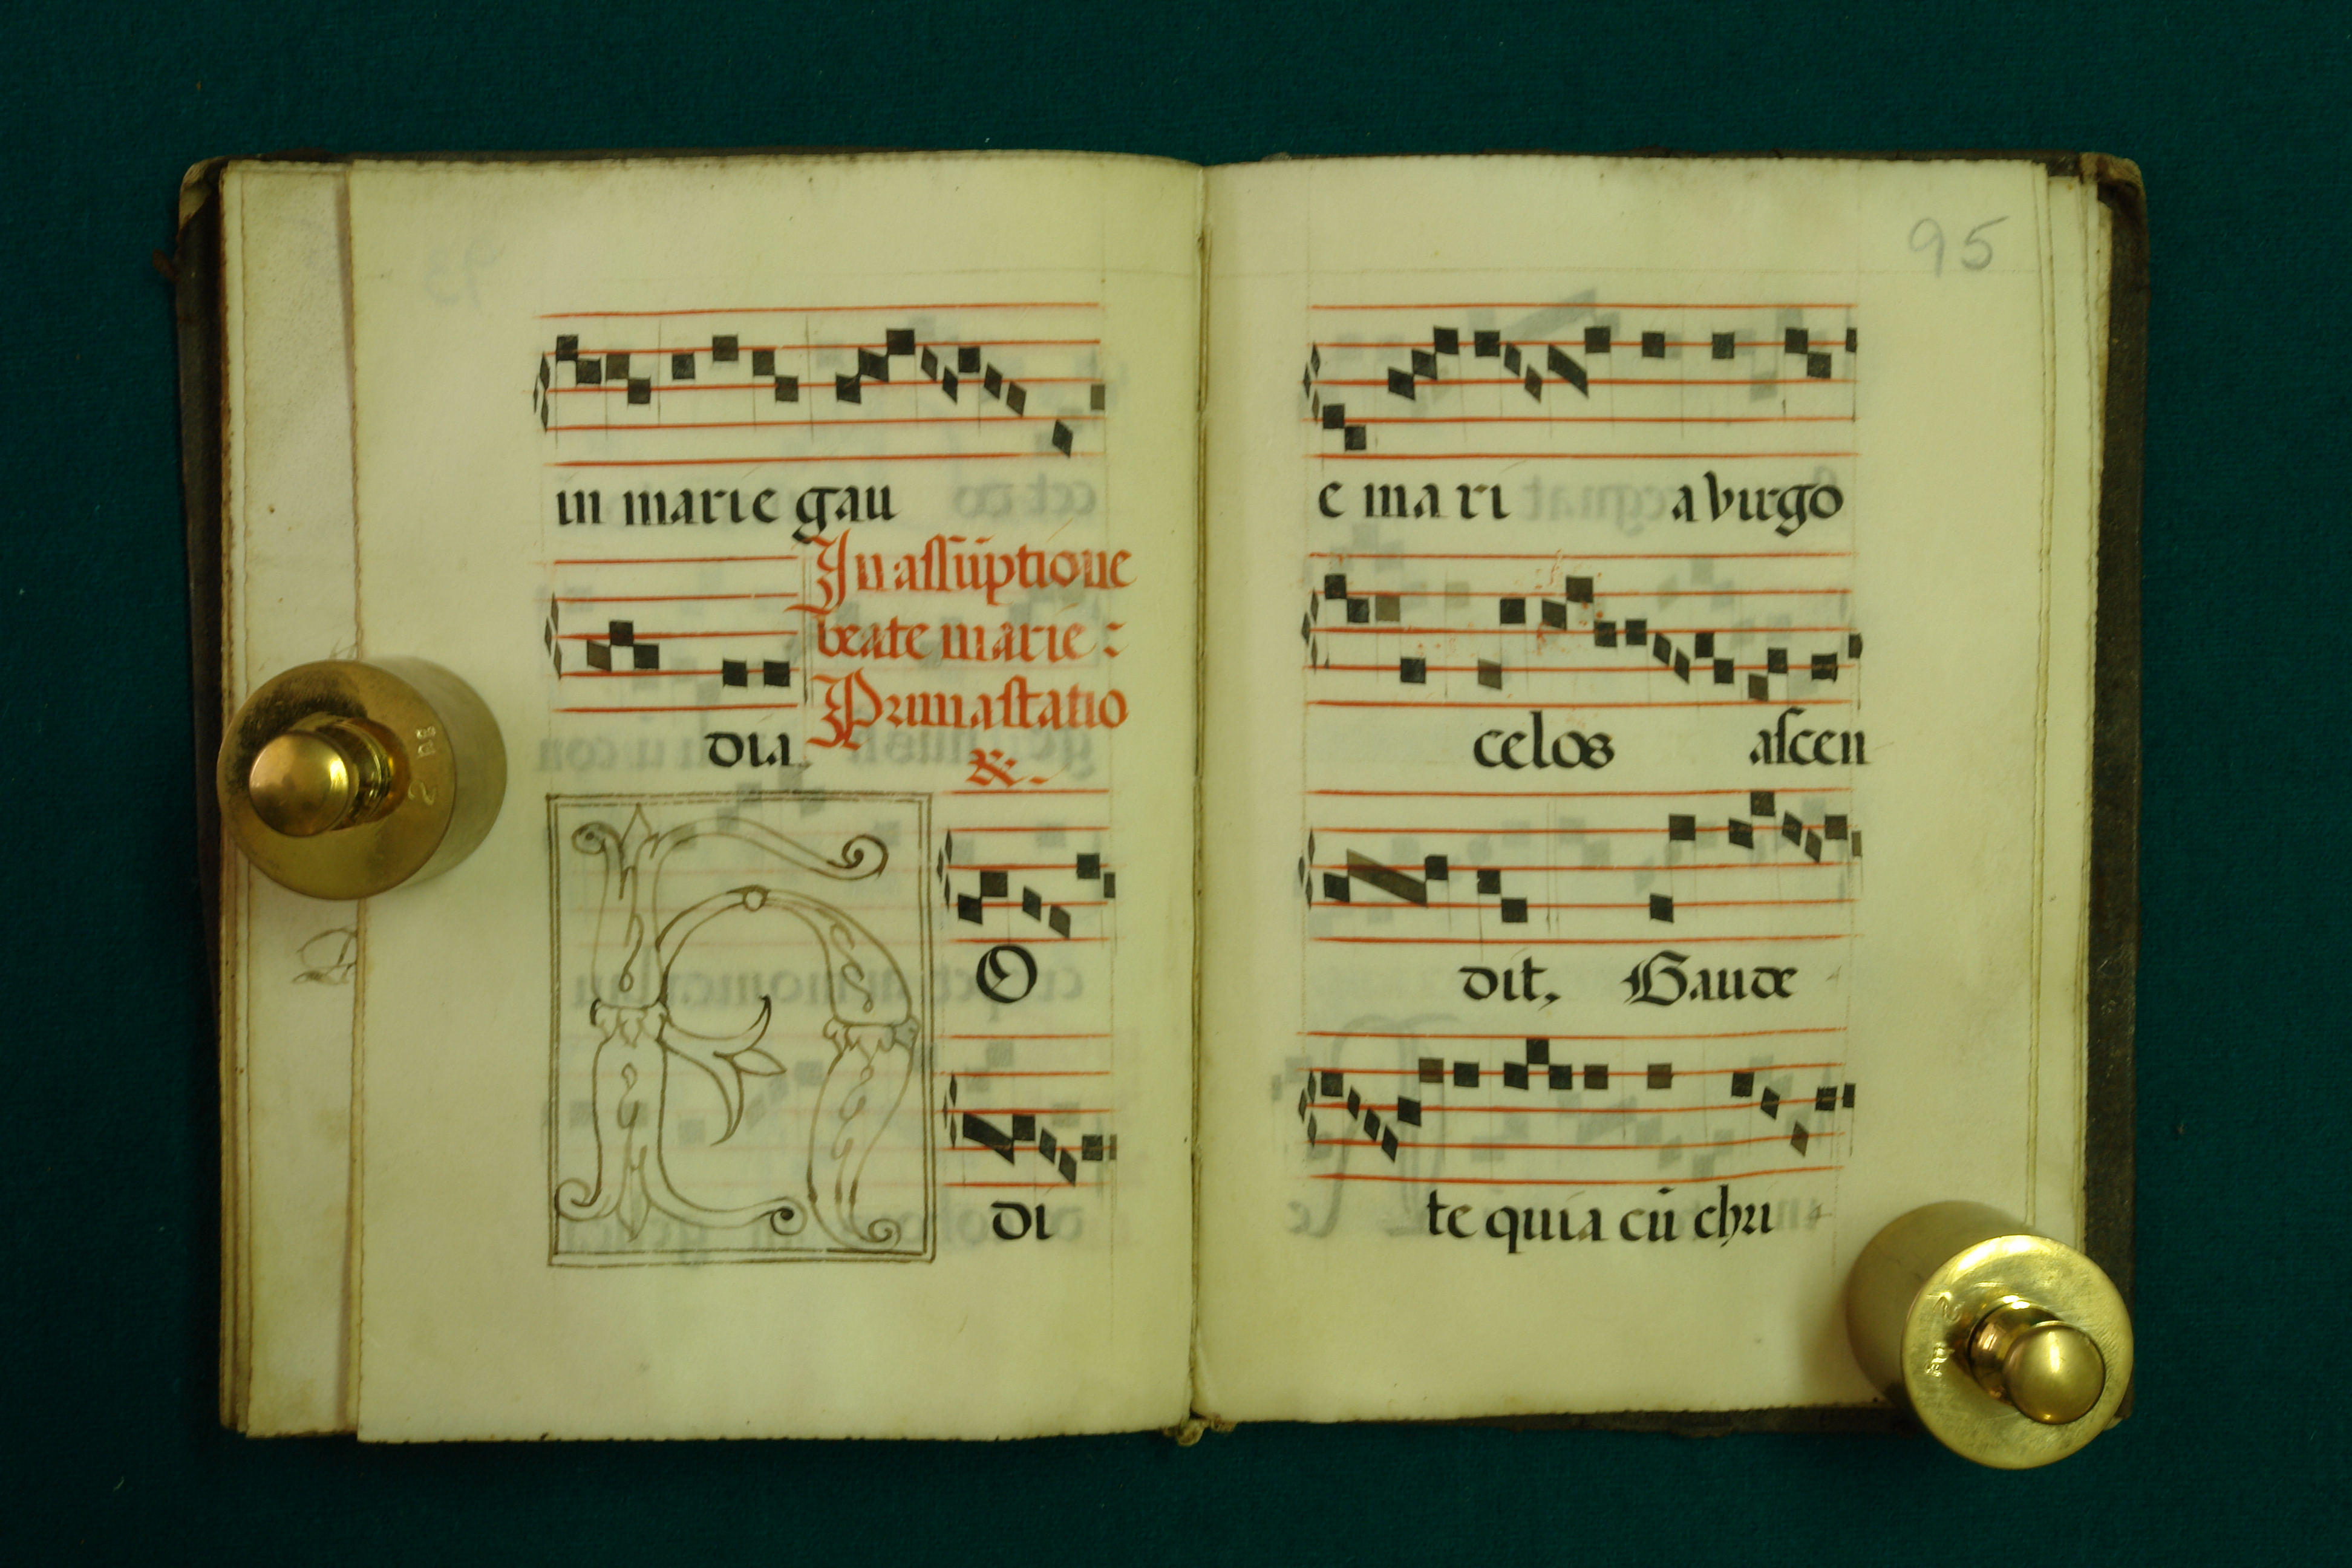 in marie gau
In assūptione
beate marie :
Prima statio
dia.
R.
H O
di
95
e mari a virgo
celos ascen
dit, Gaude
te quia cū chri